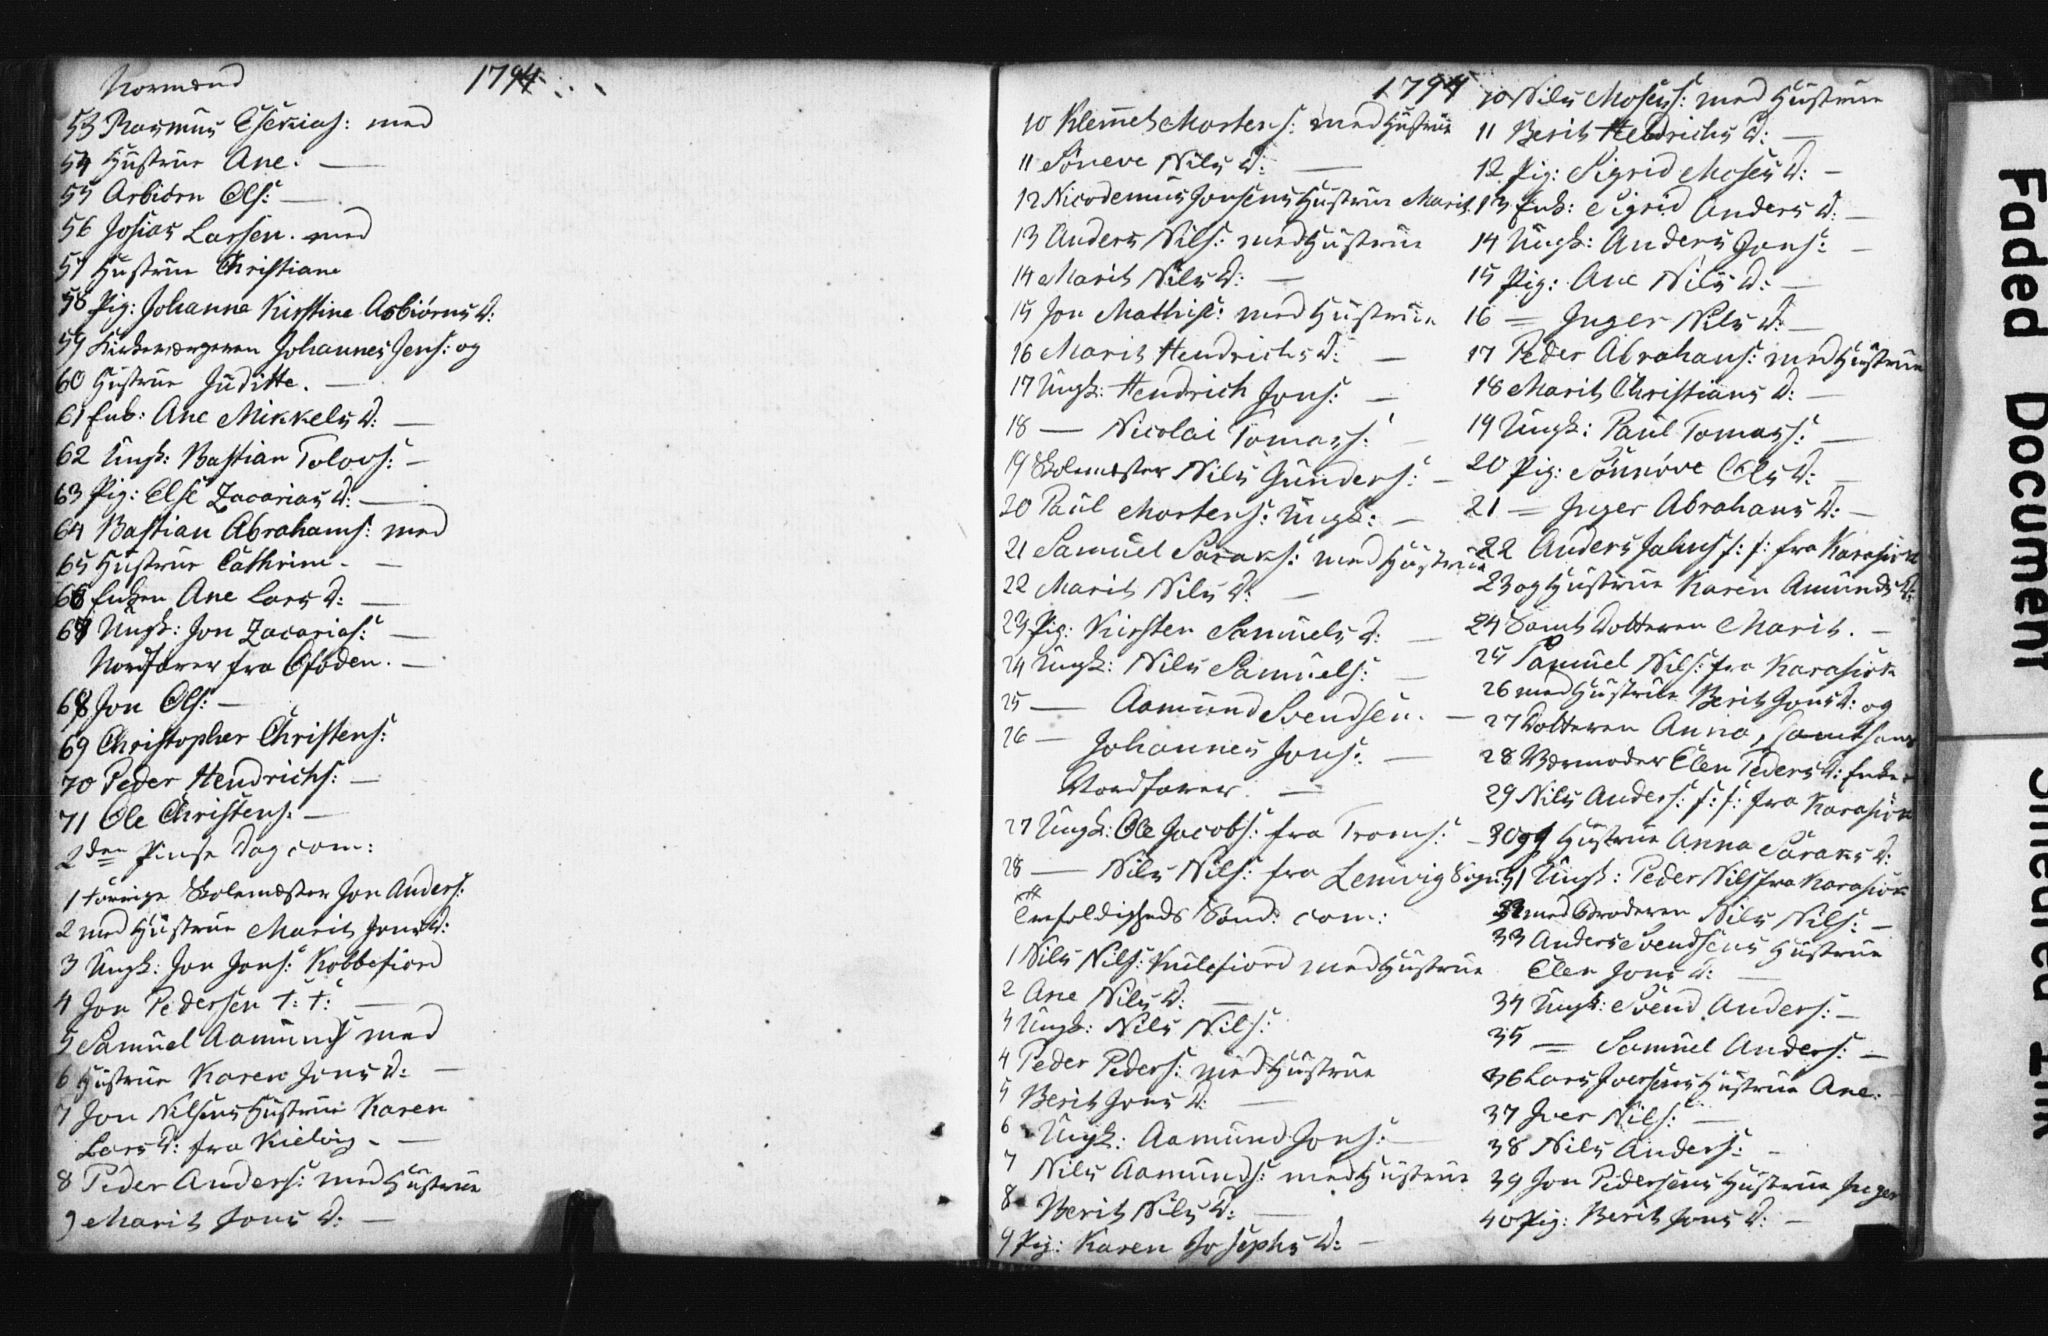 Normænd 1794
53 Rasmus Esekias: med
54 Hustrue Ane. —
55 Asbiörn Ols: —
56 Josias Larsen. med
57 Hustrue Christiane
58 Pig: Johanna Kirstine Asbiörns D:
59 Kirkeværgeren Johannes Jens: og
60 Hustrue Juditte. —
61 Enk: Ane Mikkels D: —
62 Ungk: Bastian Tolovs: —
63 Pig: Else Zacarias D: —
64 Bastian Abrahams: med
65 Hustrue Cathrine. —
66 Enken Ane Lars D: —
67 Ungk: Jon Zacarias: —
Nordfarer fra Ofoden. —
68 Jon Ols: —
69 Christopher Christens:
70 Peder Hendrichs: —
71 Ole Christens: —
2den Pinse Dag com:
1 forrige Skolemester Jon Anders:
2 med Hustrue Marit Jons D:
3 Ungk: Jon Jons: Kobbefiord
4 Jon Pedersen f: f: —
5 Samuel Aamunds med
6 Hustrue Karen Jons D: —
7 Jon Nilsens Hustrue Karen
Lars D: fra Kielvig. —
8 Peder Anders: med Hustrue
9 Marit Jons D: —
1794
10 Klemet Mortens: med Hustrue
11 Söneve Nils D: —
12 Nicodemus Jonsens Hustrue Marit
13 Anders Nils: med Hustrue
14 Marit Nils D: —
15 Jon Mathis: med Hustrue
16 Marit Hendrichs D: —
17 Ungk: Hendrich Jons: —
18 — Nicolai Tomas: —
19 Skolemester Nils Gunders: —
20 Paul Mortens: Ungk: —
21 Samuel Saraks: med Hustrue
22 Marit Nils D: —
23 Pig: Kirsten Samuels D: —
24 Ungk: Nils Samuels: —
25 — Aamund Svendsen. —
26 — Johannes Jons: —
Nordfarer. —
27 Ungk: Ole Jacobs: fra Troms: —
28 — Nils Nils: fra Lenvig Sogn
Trefoldigheds Sönd: com:
1 Nils Nils: Kulefiord med Hustrue
2 Ane Nils D: —
3 Ungk: Nils Nils:
4 Peder Peders: med Hustrue
5 Berit Jons D: —
6 Ungk: Aamund Jons: —
7 Nils Aamunds: med Hustrue
8 Berit Nils D: —
9 Pig: Karen Josephs D: —
10 Nils Moses: med Hustrue
11 Berit Hendrichs D: —
12 Pig: Sigrid Moses D: —
13 Enk: Sigrid Anders D: —
14 Ungk: Anders Jons: —
15 Pig: Ane Nils D: —
16 = Inger Nils D: —
17 Peder Abrahams: med Hustrue
18 Marit Christians D: —
19 Ungk: Paul Tomas: —
20 Pig: Sönnöve Ols D: —
21 = Inger Abrahams D: —
22 Anders Jahns f: f: fra Karasiok
23 og Hustrue Karen Amunds D:
24 Samt Dotteren Marit. —
25 Samuel Nils: fra Karasiok
26 med Hustrue Berit Jons D: og
27 Dotteren Anna, samt hans
28 Værmoder Elen Peders D: Enke
29 Nils Anders: f: f: fra Karasiok
30 og Hustrue Anna Saraks D:
31 Ungk: Peder Nils fra Karasiok
32 med Broderen Nils Nils: —
33 Anders Svendsens Hustrue
Elen Jons D: —
34 Ungk: Svend Anders: —
35 = Samuel Anders: —
36 Lars Iversens Hustrue Ane. —
37 Iver Nils: —
38 Nils Anders: —
39 Jon Pedersens Hustrue Inger
40 Pig: Berit Jons D: —
Faded Document